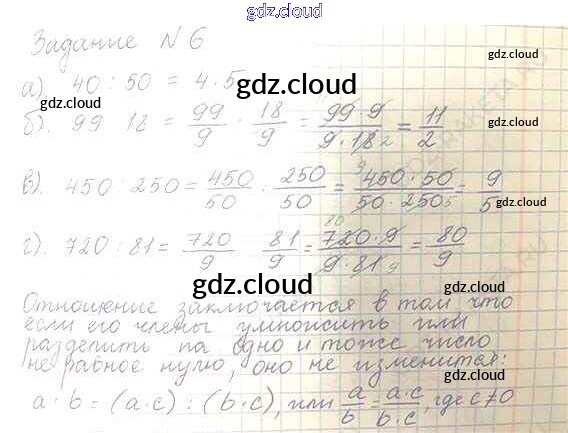 gdz.cloud
Задание N 6
gdz.cloud
а). 40 : 50 = 4 · 5
gdz.cloud
gdz.cloud
б). 99 18 = 99/9 · 18/9 = 99·9/9·18 2 = 11/2
gdz.cloud
в). 450 : 250 = 450/50 : 250/50 = 9 450·50/50·250 5 = 9/5
gdz.cloud
г). 720 : 81 = 720/9 81/9 = 80 720·9/9·81 9 = 80/9
gdz.cloud
Отношение заключается в том, что
если его члены умножить или
разделить на одно и тоже число
не равное нулю, оно не изменится:
gdz.cloud
gdz.cloud
a · b = (a·c) : (b·c), или a/b = a·c/b·c, где c≠0
gdz.cloud